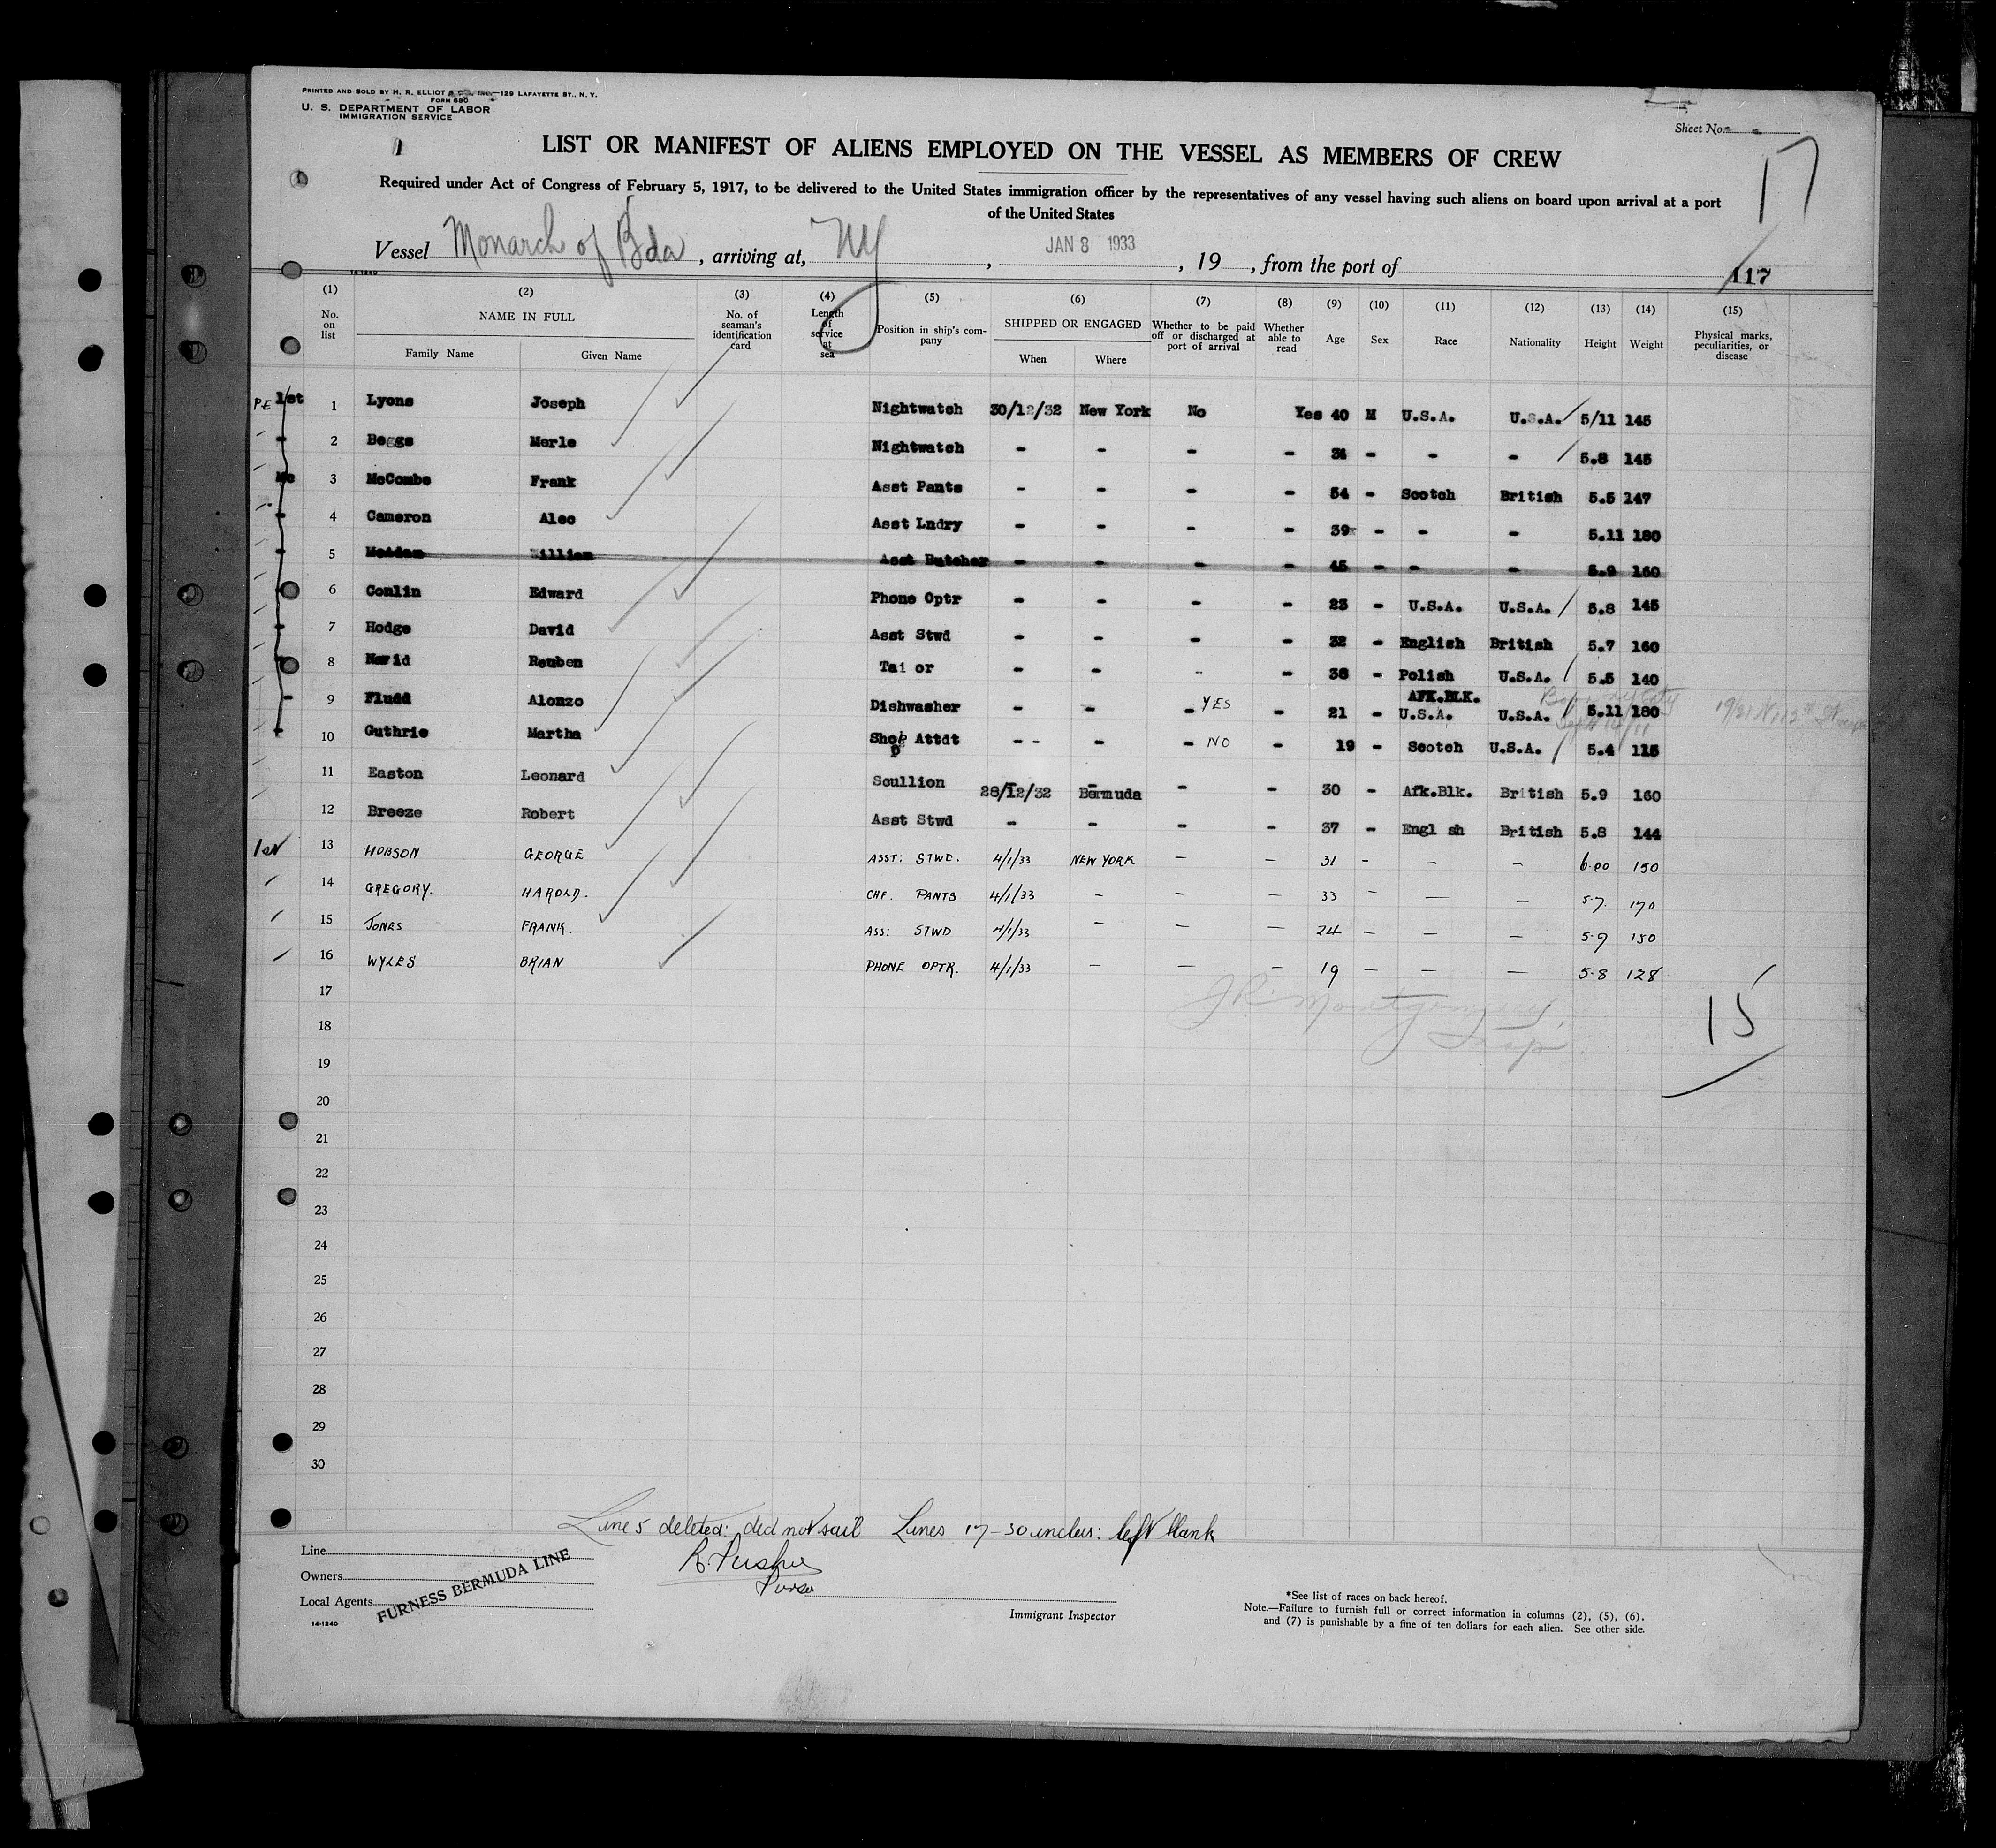 PRINTED AND SOLD BY H. R. ELLIOT & CO., INC.—129 LAFAYETTE ST., N. Y.
FORM 680
U. S. DEPARTMENT OF LABOR
IMMIGRATION SERVICE
Sheet No.
17
LIST OR MANIFEST OF ALIENS EMPLOYED ON THE VESSEL AS MEMBERS OF CREW
Required under Act of Congress of February 5, 1917, to be delivered to the United States immigration officer by the representatives of any vessel having such aliens on board upon arrival at a port
of the United States
Vessel Monarch of Bda, arriving at, NY, JAN 8 1933, 19 , from the port of
14-1240
117
(1) (2) (3) (4) (5) (6) (7) (8) (9) (10) (11) (12) (13) (14) (15)
No. on list NAME IN FULL Family Name Given Name No. of seaman's identification card Length of service at sea Position in ship's company SHIPPED OR ENGAGED When Where Whether to be paid off or discharged at port of arrival Whether able to read Age Sex Race Nationality Height Weight Physical marks, peculiarities, or disease
PE 1st 1 Lyons Joseph Nightwatch 30/12/32 New York No Yes 40 M U.S.A. U.S.A. 5/11 145
- 2 Beggs Merle Nightwatch - - - - 34 - - - 5.8 145
3 McCombe Frank Asst Pants - - - - 54 - Scotch British 5.5 147
- 4 Cameron Alec Asst Lndry - - - - 39 - - - 5.11 180
- 5 McAdam William Asst Butcher - - - - 45 - - - 5.9 160
6 Conlin Edward Phone Optr - - - - 23 - U.S.A. U.S.A. 5.8 145
- 7 Hodge David Asst Stwd - - - - 32 - English British 5.7 160
8 Reuben Tai or - - - - 38 - Polish U.S.A. 5.5 140
- 9 Fludd Alonzo Dishwasher - - - YES - 21 - AFK.BLK. U.S.A. U.S.A. 5.11 180
- 10 Guthrie Martha Shop Attdt - - - - NO - 19 - Scotch U.S.A. 5.4 115
11 Easton Leonard Scullion 28/12/32 Bermuda - - 30 - Afk.Blk. British 5.9 160
12 Breeze Robert Asst Stwd - - - - 37 - Engl sh British 5.8 144
1st 13 HOBSON GEORGE ASST: STWD. 4/1/33 NEW YORK - - 31 - - - 6.00 150
14 GREGORY. HAROLD. CHF. PANTS 4/1/33 - - - 33 - - - 5.7. 170
15 JONES FRANK. ASS: STWD 4/1/33 - - - 24 - - - 5.9 150
16 WYLES BRIAN PHONE OPTR. 4/1/33 - - - 19 - - - 5.8 128
17
J.R. Montgomery
Insp
15
18
19
20
21
22
23
24
25
26
27
28
29
30
Line 5 deleted: did not sail Lines 17-30 inclus: left blank
Purser
Line
Owners
Local Agents
FURNESS BERMUDA LINE
14-1240
Immigrant Inspector
*See list of races on back hereof.
Note.—Failure to furnish full or correct information in columns (2), (5), (6),
and (7) is punishable by a fine of ten dollars for each alien. See other side.